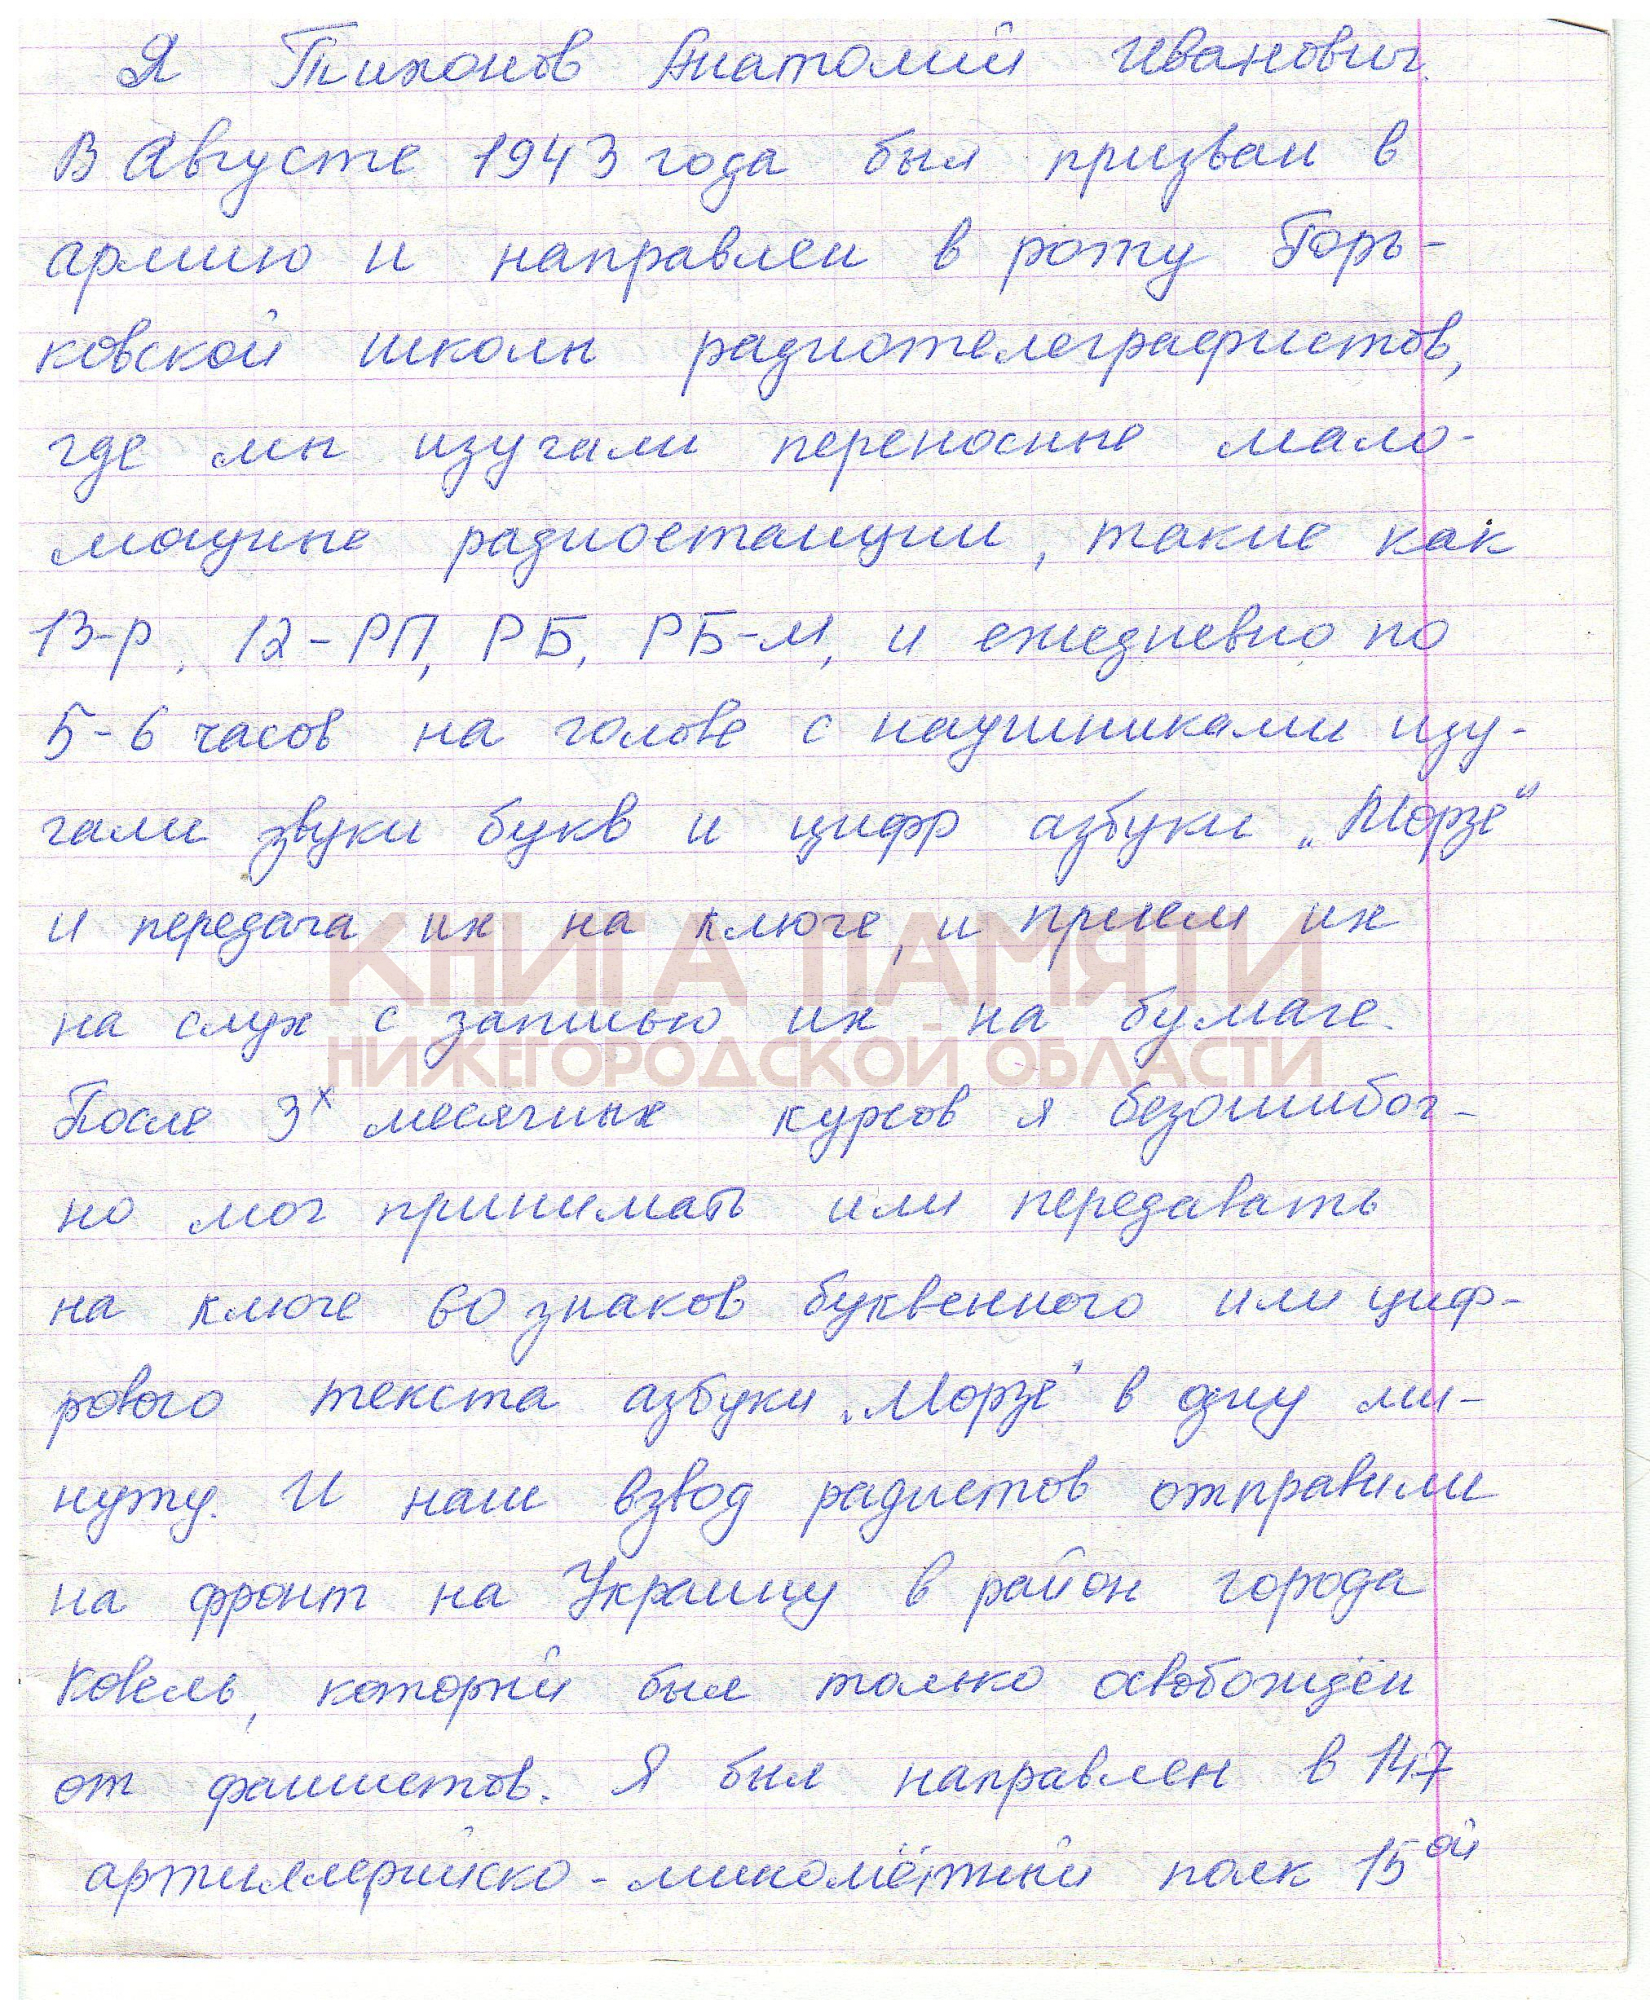 Я Тихонов Анатолий Иванович.
В Августе 1943 года был призван в
армию и направлен в роту Горь-
ковской школы радиотелеграфистов,
где мы изучали переносные мало-
мощные радиостанции, такие как
13-р, 12-РП, РБ, РБ-М, и ежедневно по
5-6 часов на голове с наушниками изу-
чали звуки букв и цифр азбуки „Морзе"
и передача их на ключе, и прием их
КНИГА ПАМЯТИ
на слух с записью их на бумаге.
НИЖЕГОРОДСКОЙ ОБЛАСТИ
После 3х месячных курсов я безошибоч-
но мог принимать или передавать
на ключе 60 знаков буквенного или циф-
рового текста азбуки „Морзе" в одну ми-
нуту. И наш взвод радистов отправили
на фронт на Украину в район города
Ковель, который был только освобождён
от фашистов. Я был направлен в 147
артиллерийско-миномётный полк 15ой